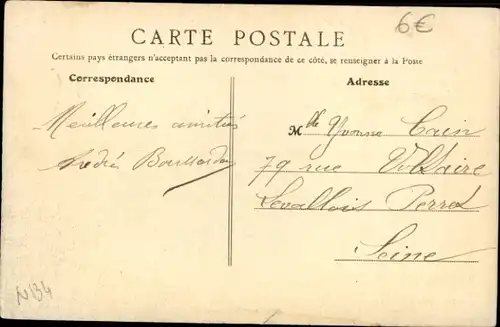 6€
CARTE POSTALE
Certains pays étrangers n'acceptant pas la correspondance de ce côté, se renseigner à la Poste
Correspondance
Adresse
Meilleures amitiés
André
Mlle Yvonne Cain
79 rue Voltaire
Levallois Perret
Seine
N134